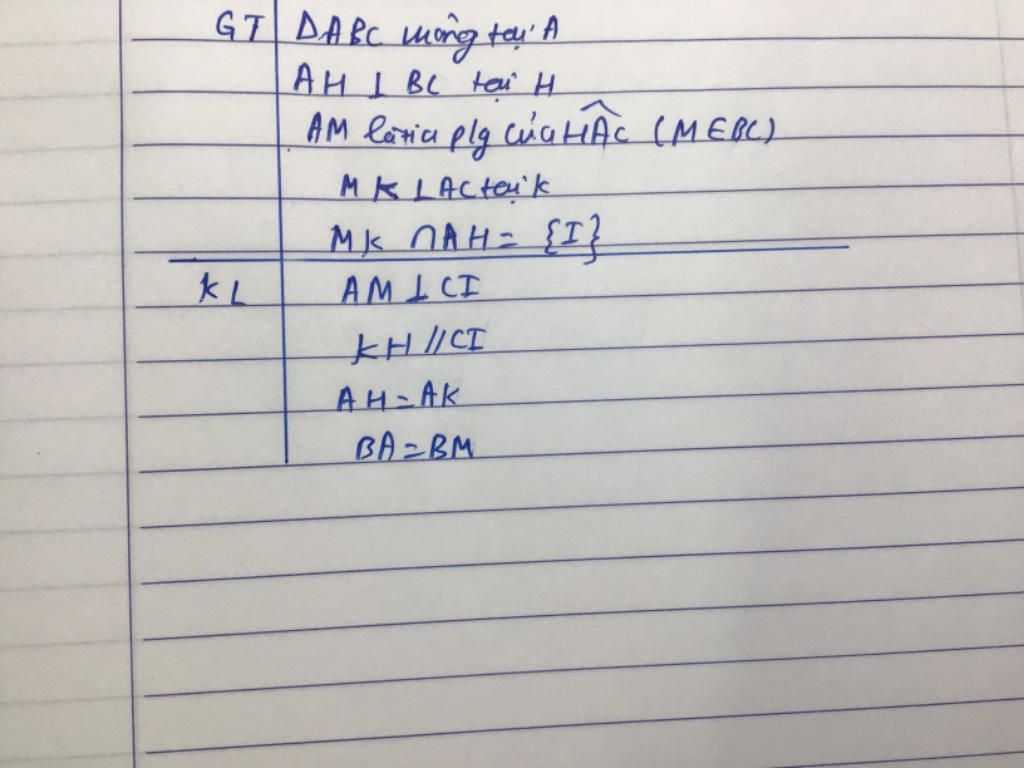 GT | ΔABC vuông tại A
AH ⊥ BC tại H
AM là tia p/g của HÂC (M ∈ BC)
MK ⊥ AC tại K
MK ∩ AH = {I}
KL | AM ⊥ CI
KH // CI
AH = AK
BA = BM